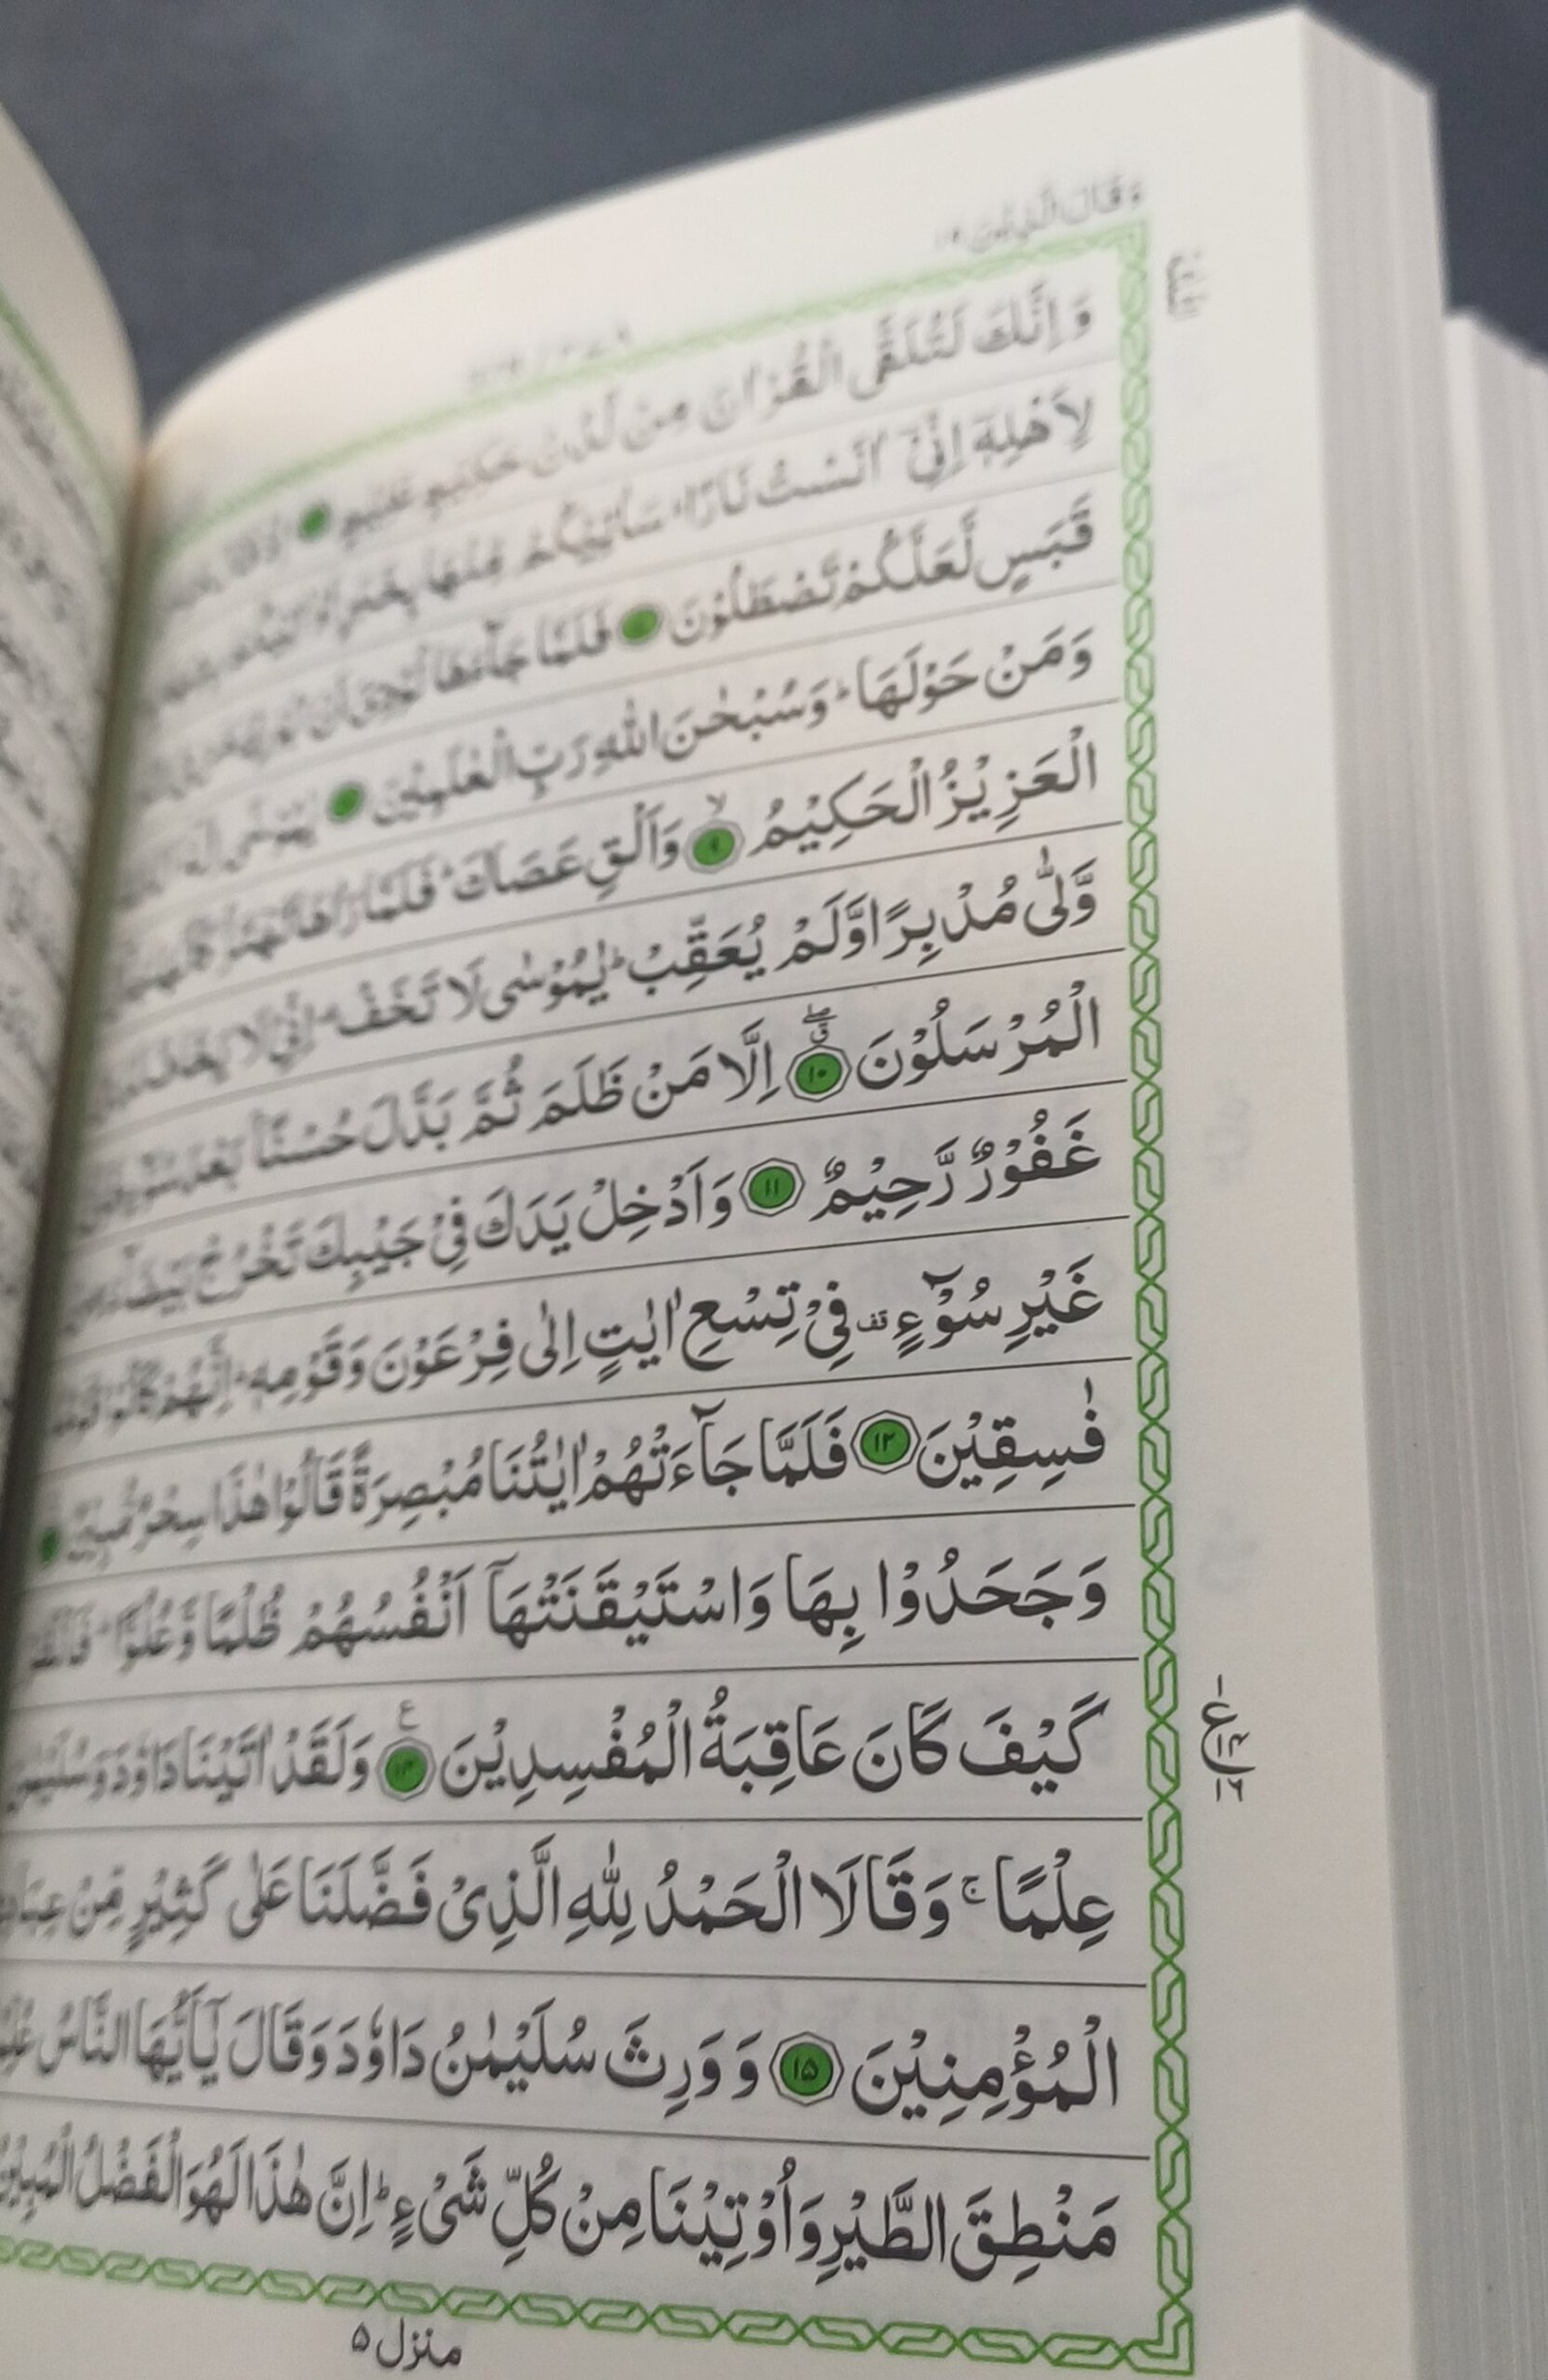 وَقَالَ الَّذِيْنَ ١٩
النمل
وَاِنَّكَ لَتُلَقَّى الْقُرْاٰنَ مِنْ لَّدُنْ حَكِيْمٍ عَلِيْمٍ
لِاَهْلِهٖۤ اِنِّيْۤ اٰنَسْتُ نَارًا ؕ سَاٰتِيْكُمْ مِّنْهَا بِخَبَرٍ اَوْ اٰتِيْكُمْ
قَبَسٍ لَّعَلَّكُمْ تَصْطَلُوْنَ فَلَمَّا جَآءَهَا نُوْدِيَ اَنْۢ بُوْرِكَ مَنْ فِي
وَمَنْ حَوْلَهَا ؕ وَسُبْحٰنَ اللّٰهِ رَبِّ الْعٰلَمِيْنَ يٰمُوْسٰۤى اِنَّهٗۤ
الْعَزِيْزُ الْحَكِيْمُ ۙ ٩ وَاَلْقِ عَصَاكَ ؕ فَلَمَّا رَاٰهَا تَهْتَزُّ كَاَنَّهَا
وَّلّٰى مُدْبِرًا وَّلَمْ يُعَقِّبْ ؕ يٰمُوْسٰى لَا تَخَفْ اِنِّيْ لَا يَخَافُ
الْمُرْسَلُوْنَ ١٠ اِلَّا مَنْ ظَلَمَ ثُمَّ بَدَّلَ حُسْنًۢا بَعْدَ سُوْٓءٍ
غَفُوْرٌ رَّحِيْمٌ ١١ وَاَدْخِلْ يَدَكَ فِيْ جَيْبِكَ تَخْرُجْ بَيْضَآءَ
غَيْرِ سُوْٓءٍ قف فِيْ تِسْعِ اٰيٰتٍ اِلٰى فِرْعَوْنَ وَقَوْمِهٖ ؕ اِنَّهُمْ كَانُوْا قَوْمًا
فٰسِقِيْنَ ١٢ فَلَمَّا جَآءَتْهُمْ اٰيٰتُنَا مُبْصِرَةً قَالُوْا هٰذَا سِحْرٌ مُّبِيْنٌ
وَجَحَدُوْا بِهَا وَاسْتَيْقَنَتْهَاۤ اَنْفُسُهُمْ ظُلْمًا وَّعُلُوًّا ؕ
كَيْفَ كَانَ عَاقِبَةُ الْمُفْسِدِيْنَ ع ١٤ وَلَقَدْ اٰتَيْنَا دَاوٗدَ وَسُلَيْمٰنَ
عِلْمًا ۚ وَقَالَا الْحَمْدُ لِلّٰهِ الَّذِيْ فَضَّلَنَا عَلٰى كَثِيْرٍ مِّنْ
الْمُؤْمِنِيْنَ ١٥ وَوَرِثَ سُلَيْمٰنُ دَاوٗدَ وَقَالَ يٰۤاَيُّهَا النَّاسُ
مَنْطِقَ الطَّيْرِ وَاُوْتِيْنَا مِنْ كُلِّ شَيْءٍ ؕ اِنَّ هٰذَا لَهُوَ الْفَضْلُ الْمُبِيْنُ
منزل ۵